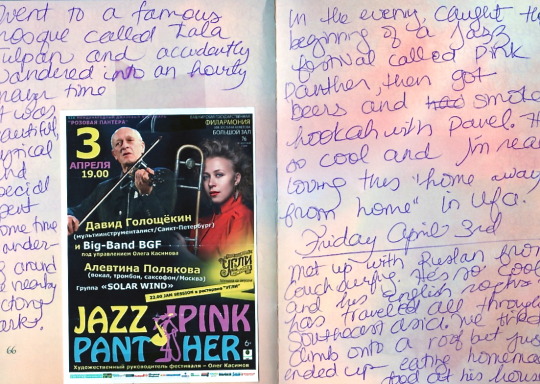 went to a famous
mosque called Lala
Tulpan and accidently
wandered into an hourly
prayer time
It was
beautiful,
lyrical
and
special
spent
some time
wander-
g around
nearby
ark.
66
"РОЗОВАЯ ПАНТЕРА"
ФИЛАРМОНИЯ
БОЛЬШОЙ ЗАЛ
3
АПРЕЛЯ
19.00
Давид Голощёкин
(мультиинструменталист/Санкт-Петербург)
и Big-Band BGF
под управлением Олега Касимова
УГЛИ
Алевтина Полякова
(вокал, тромбон, саксофон/Москва)
Группа «SOLAR WIND»
22.00 JAM SESSION в ресторане "УГЛИ"
JAZZ PINK
PANTHER
6+
Художественный руководитель фестиваля – Олег Касимов
In the evening, caught the
beginning of a jazz
festival called Pink
Panther, then got
beers and had smoked
hookah with Pavel. H
so cool and I'm real
loving this "home away
from home" in Ufa.
Friday April 3rd
Met up with Ruslan from
couchsurfing. He's so cool
and his english
has traveled all through
Southeast asia. We tried
climb onto a roof but jus
ended up eating homema
food at his house